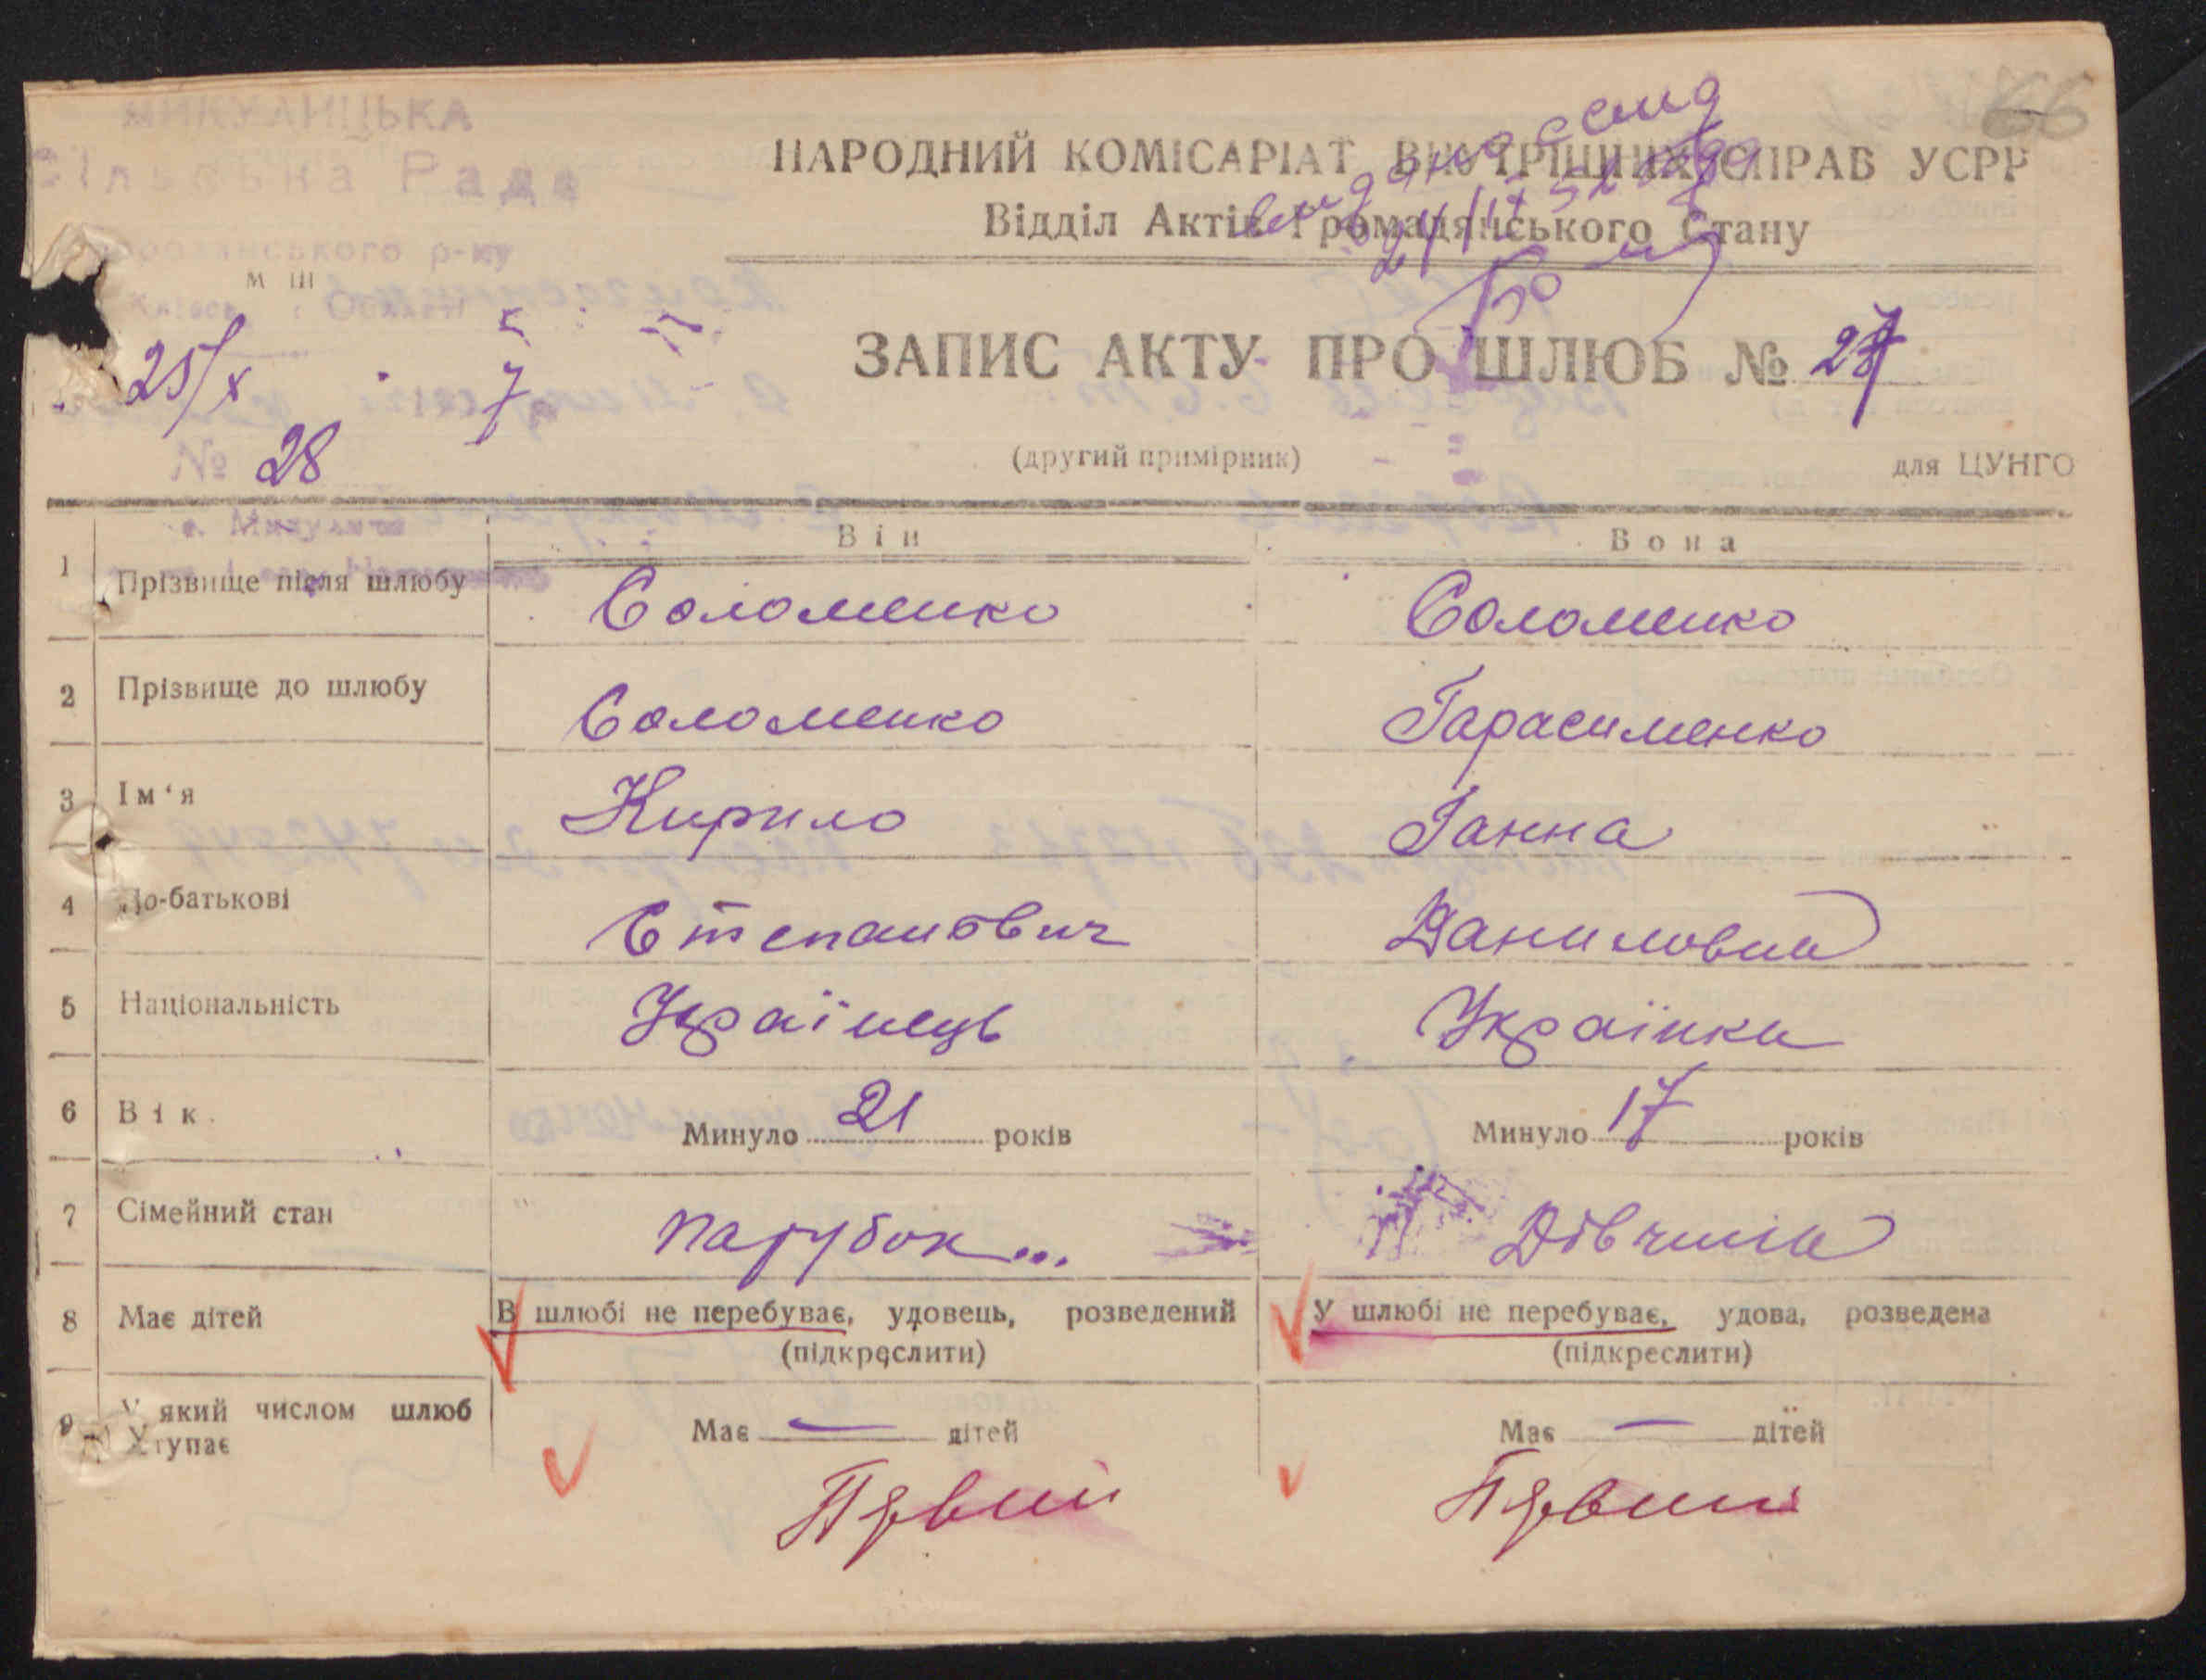 МИКУЛИЦЬКА
Сільська Рада
р-ку
Області
25/X
№ 28
66
НАРОДНИЙ КОМІСАРІАТ ВНУТРІШНІХ СПРАВ УСРР
Відділ Актів Громадянського Стану
ЗАПИС АКТУ ПРО ШЛЮБ № 27
(другий примірник)
для ЦУНГО
Він Вона
1 Прізвище після шлюбу Соломенко Соломенко
2 Прізвище до шлюбу Соломенко Гарасименко
3 Ім‘я Кирило Ганна
4 По-батькові Степанович Даниловна
5 Національність Українець Українка
6 Вік Минуло 21 років Минуло 17 років
7 Сімейний стан парубок... Дівчина
8 Має дітей В шлюбі не перебуває, удовець, розведений У шлюбі не перебуває, удова, розведена
(підкреслити) (підкреслити)
9 У який числом шлюб вступає Має — дітей Має — дітей
Первий Первий